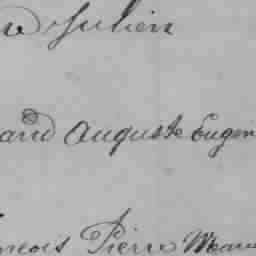 Julien
and Auguste Eugen
ncois Pierre Marie